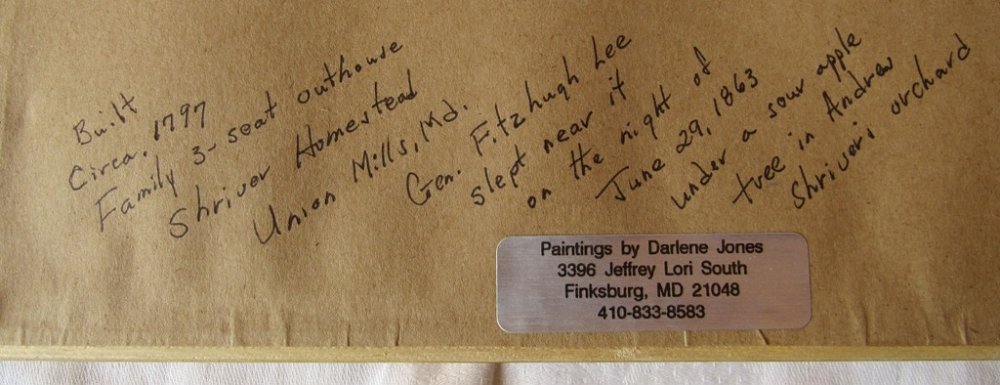 Built
Circa. 1797
Family 3-seat outhouse
Shriver Homestead
Union Mills, Md.
Gen. Fitzhugh Lee
slept near it
on the night of
June 29, 1863
under a sour apple
tree in Andrew
Shriver's orchard
Paintings by Darlene Jones
3396 Jeffrey Lori South
Finksburg, MD 21048
410-833-8583